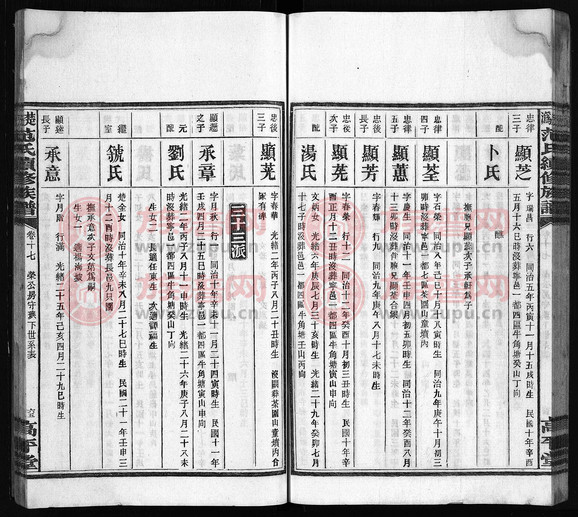 范氏續修族譜
忠律
三子
顯芝
字瑞昌 行六 同治五年丙寅十一月十五戌時生 民國十年辛酉
五月十六巳時沒葬寧邑一都四區牛角塘癸山丁向
配
卜氏
撫應兄顯
次子承軒為子
忠律
四子
顯荃
字石榮 同治八年己巳十月十八寅時生 同治九年庚午十月初三
卯時沒葬寧邑一都四區園山童墳內
忠律
五子
顯蕙
字慶生 同治十一年壬申四月初五卯時生 同治十二年
十三卯時沒葬寧邑
兄顯荃合
忠後
長子
顯芳
字春輝 行九 同治九年庚午八月十七未時生
忠後
次子
顯芫
字春榮 行十二 同治十二年癸酉十月初三丑時生 民國十年辛
酉正月十二丑時沒葬寧邑一都四區牛角塘寅山申向
配
湯氏
文炳女 光緒六年庚辰七月三十亥時生 光緒二十九年癸卯七月
十七子時沒葬寧邑一都四區牛角塘
山丙向
忠後
三子
顯芜
字春華 光緒二年丙子八月二十丑時生
園山童墳內合
家有碑
三十三派
顯
之子
承章
字月秋 行一 同治十一年
十一月二十四寅時生 民國十一年
壬戌四月二十五
時沒葬寧邑一都四區牛角塘寅山申向
元
配
劉氏
光緒二年丙子八月十一申時生 光緒二十六年庚子八月二十八未
時沒葬寧邑一都四區牛角塘癸山丁向
生女二 長適任東生 次適
福生
繼
室
虢氏
楚金女 同治十年辛未八月二十七巳時生 民國二十一年壬申三
月十二酉時沒葬長邑九只園
撫承意次子文
為嗣
生女一 適楊海
顯達
長子
承意
字月階 行滿 光緒二十五年己亥四月二十九巳時生
范氏續修族譜
卷十七
榮公房守
下世系表
高平堂
高平堂